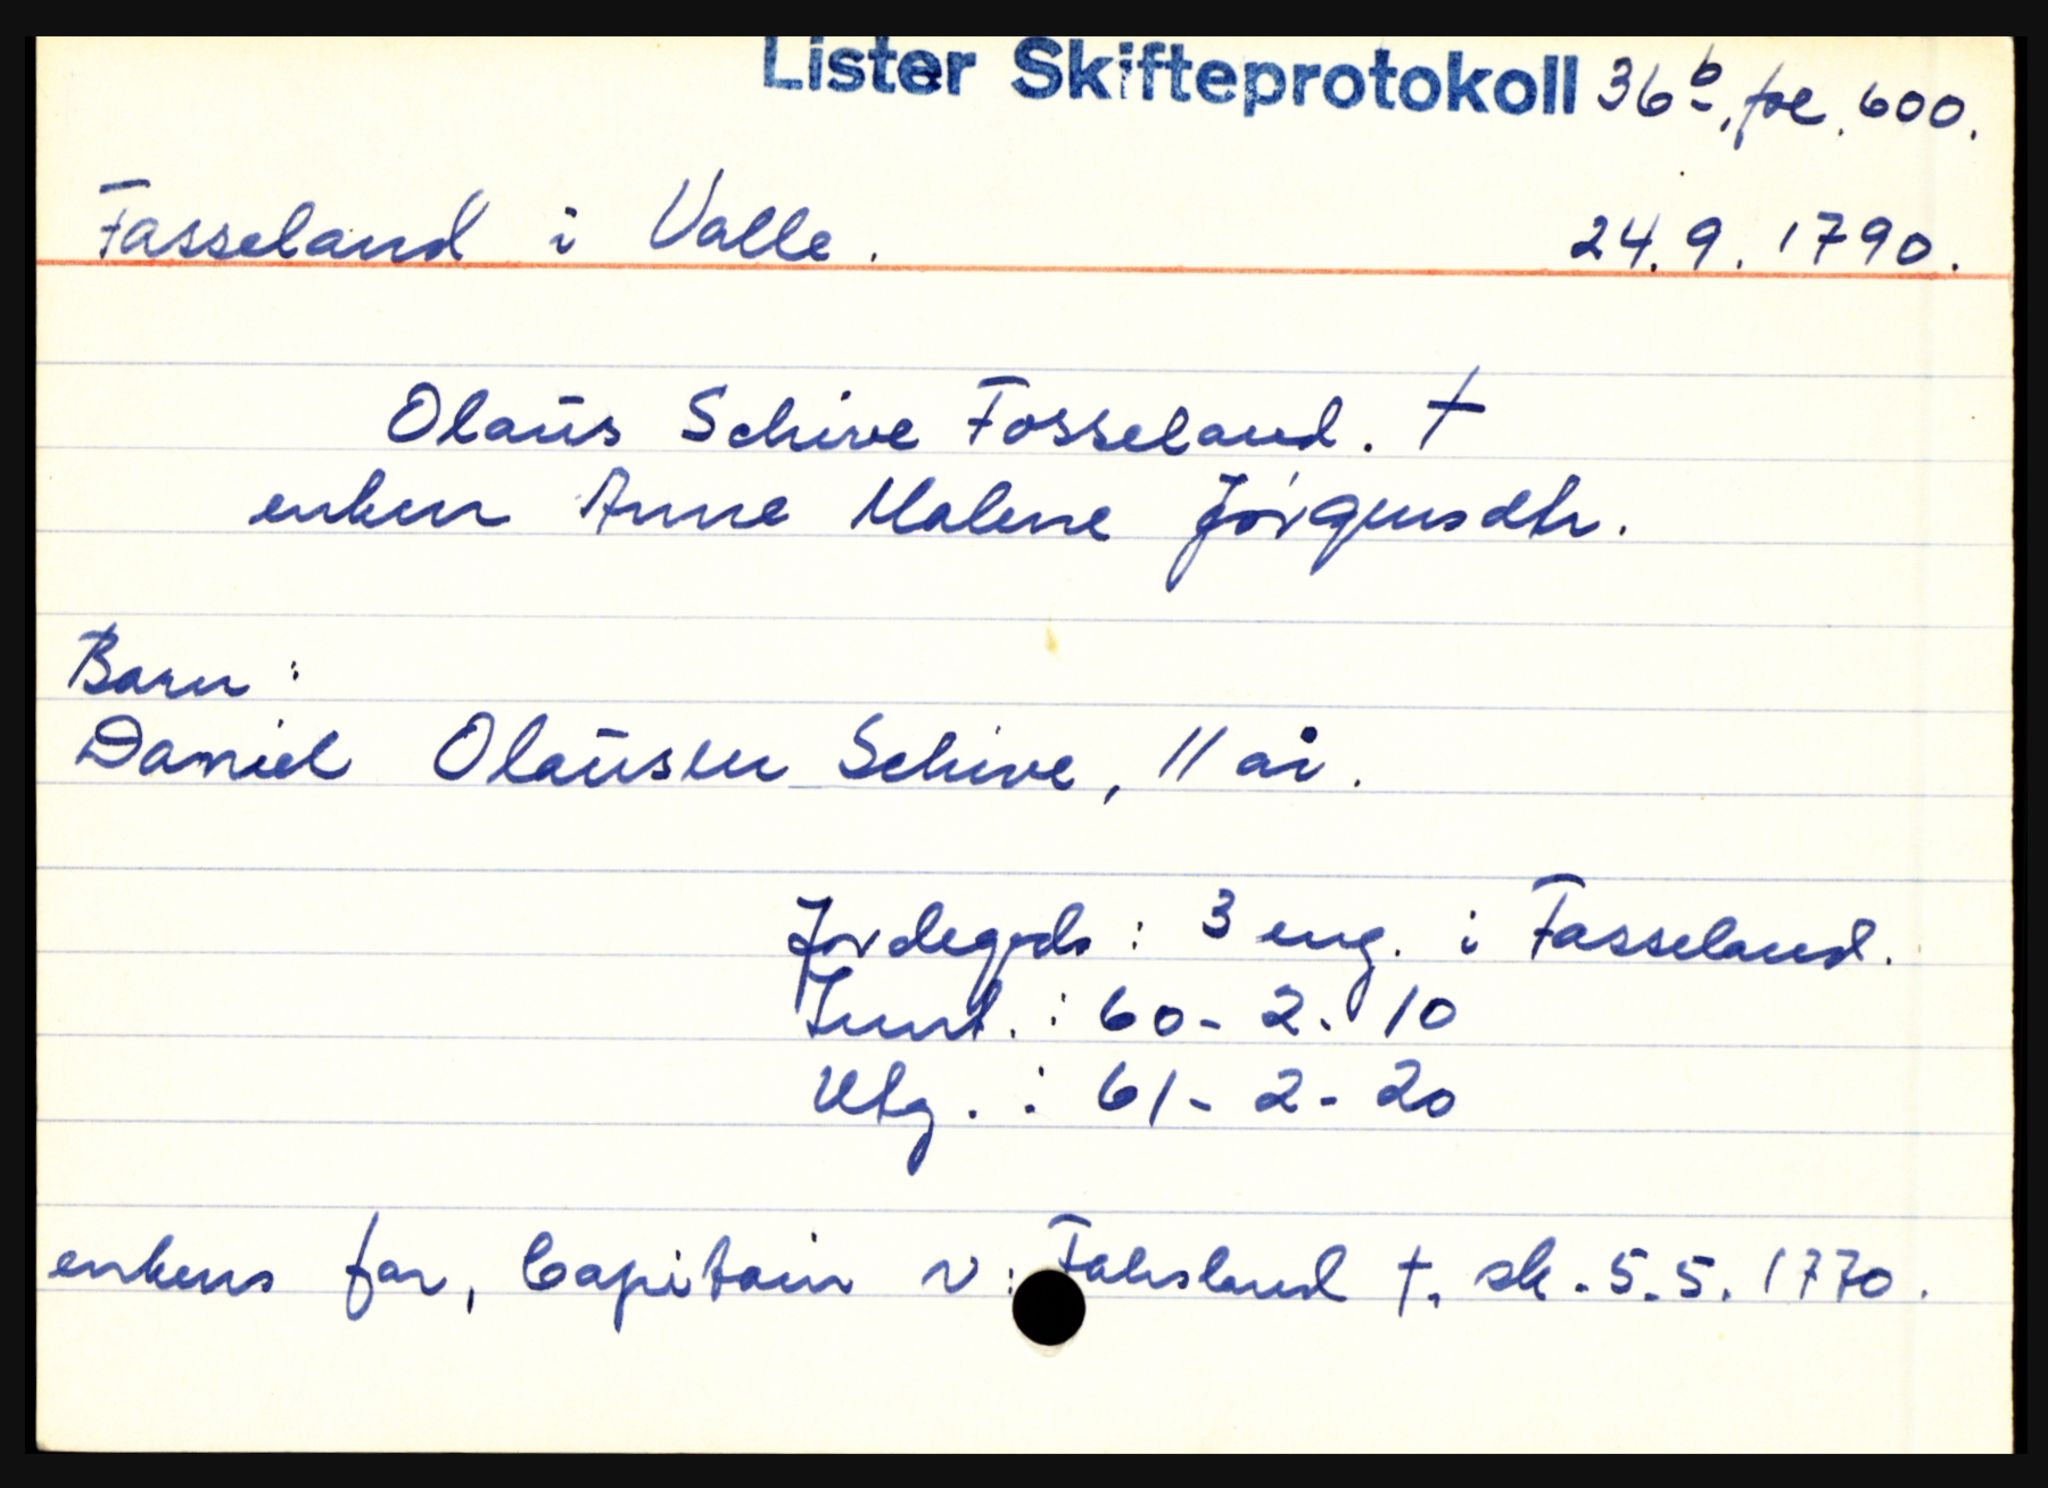 Lister Skifteprotokoll 36b, fol. 600.
Fasseland i Valle. 24.9.1790.
Olaus Schive Fosseland. †
enken Anne Malene Jørgensdtr.
Barn:
Daniel Olausen Schive, 11 år.
Jordegods: 3 eng. i Fasseland.
Innt.: 60-2-10
Utg.: 61-2-20
enkens far, Capitain v: Fahsland †. sk. 5.5.1770.